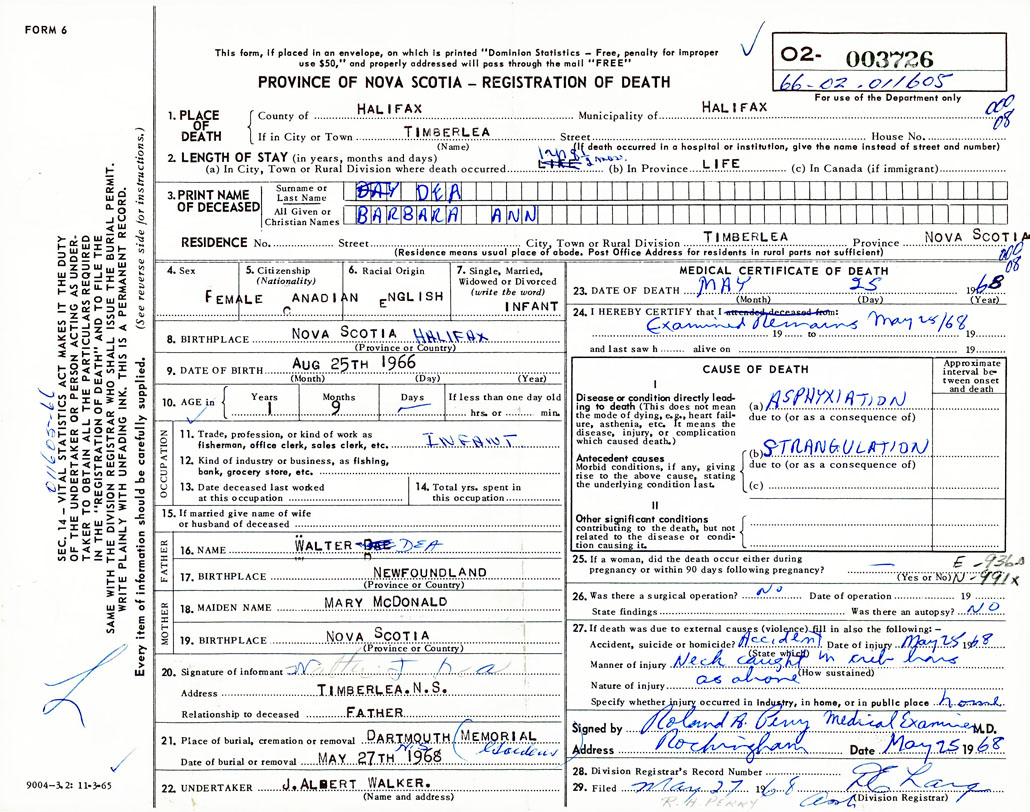 FORM 6
This form, if placed in an envelope, on which is printed "Dominion Statistics – Free, penalty for improper
use $50," and properly addressed will pass through the mail "FREE"
PROVINCE OF NOVA SCOTIA – REGISTRATION OF DEATH
O2- 003726
66-02-011605
For use of the Department only
000
08
1. PLACE OF DEATH
County of HALIFAX Municipality of HALIFAX
If in City or Town TIMBERLEA Street House No.
(Name) (If death occurred in a hospital or institution, give the name instead of street and number)
2. LENGTH OF STAY (in years, months and days)
(a) In City, Town or Rural Division where death occurred LIFE (b) In Province LIFE (c) In Canada (if immigrant)
3. PRINT NAME OF DECEASED
Surname or Last Name DAY DEA
All Given or Christian Names BARBARA ANN
RESIDENCE No. Street City, Town or Rural Division TIMBERLEA Province NOVA SCOTIA
(Residence means usual place of abode. Post Office Address for residents in rural parts not sufficient)
000
08
4. Sex FEMALE
5. Citizenship (Nationality) CANADIAN
6. Racial Origin ENGLISH
7. Single, Married, Widowed or Divorced (write the word) INFANT
8. BIRTHPLACE NOVA SCOTIA HALIFAX
(Province or Country)
9. DATE OF BIRTH AUG 25TH 1966
(Month) (Day) (Year)
10. AGE in Years 1 Months 9 Days If less than one day old hrs. or min.
OCCUPATION
11. Trade, profession, or kind of work as fisherman, office clerk, sales clerk, etc. INFANT
12. Kind of industry or business, as fishing, bank, grocery store, etc.
13. Date deceased last worked at this occupation
14. Total yrs. spent in this occupation
15. If married give name of wife or husband of deceased
FATHER
16. NAME WALTER DEA
17. BIRTHPLACE NEWFOUNDLAND
(Province or Country)
MOTHER
18. MAIDEN NAME MARY MCDONALD
19. BIRTHPLACE NOVA SCOTIA
(Province or Country)
20. Signature of informant
Address TIMBERLEA. N.S.
Relationship to deceased FATHER
21. Place of burial, cremation or removal DARTMOUTH N.S. MEMORIAL Gardens
Date of burial or removal MAY 27TH 1968
22. UNDERTAKER J. ALBERT WALKER.
(Name and address)
MEDICAL CERTIFICATE OF DEATH
23. DATE OF DEATH MAY 25 1968
(Month) (Day) (Year)
24. I HEREBY CERTIFY that I attended deceased from:
Examined Remains May 25/68
19 to 19
and last saw h alive on 19
CAUSE OF DEATH
Approximate interval between onset and death
I
Disease or condition directly leading to death (This does not mean the mode of dying, e.g., heart failure, asthenia, etc. It means the disease, injury, or complication which caused death.)
(a) ASPHYXIATION
due to (or as a consequence of)
Antecedent causes
Morbid conditions, if any, giving rise to the above cause, stating the underlying condition last.
(b) STRANGULATION
due to (or as a consequence of)
(c)
II
Other significant conditions
contributing to the death, but not related to the disease or condition causing it.
25. If a woman, did the death occur either during pregnancy or within 90 days following pregnancy?
(Yes or No)
E-936.0
N-991X
26. Was there a surgical operation? No Date of operation 19
State findings Was there an autopsy? NO
27. If death was due to external causes (violence) fill in also the following: –
Accident, suicide or homicide? Accident Date of injury May 25 1968
(State which)
Manner of injury Neck caught in crib bars
(How sustained)
Nature of injury as above
Specify whether injury occurred in industry, in home, or in public place home
Signed by Roland B. Perry Medical Examiner M.D.
Address Rockingham Date May 25 1968
28. Division Registrar's Record Number
29. Filed May 27 1968
(Division Registrar)
R.H. PERRY
SEC. 14 – VITAL STATISTICS ACT MAKES IT THE DUTY
OF THE UNDERTAKER OR PERSON ACTING AS UNDER-
TAKER TO OBTAIN ALL THE PARTICULARS REQUIRED
IN THE "REGISTRATION OF DEATH" AND TO FILE THE
SAME WITH THE DIVISION REGISTRAR WHO SHALL ISSUE THE BURIAL PERMIT.
WRITE PLAINLY WITH UNFADING INK. THIS IS A PERMANENT RECORD.
Every item of information should be carefully supplied. (See reverse side for instructions.)
011605-66
9004-3.2: 11-3-65